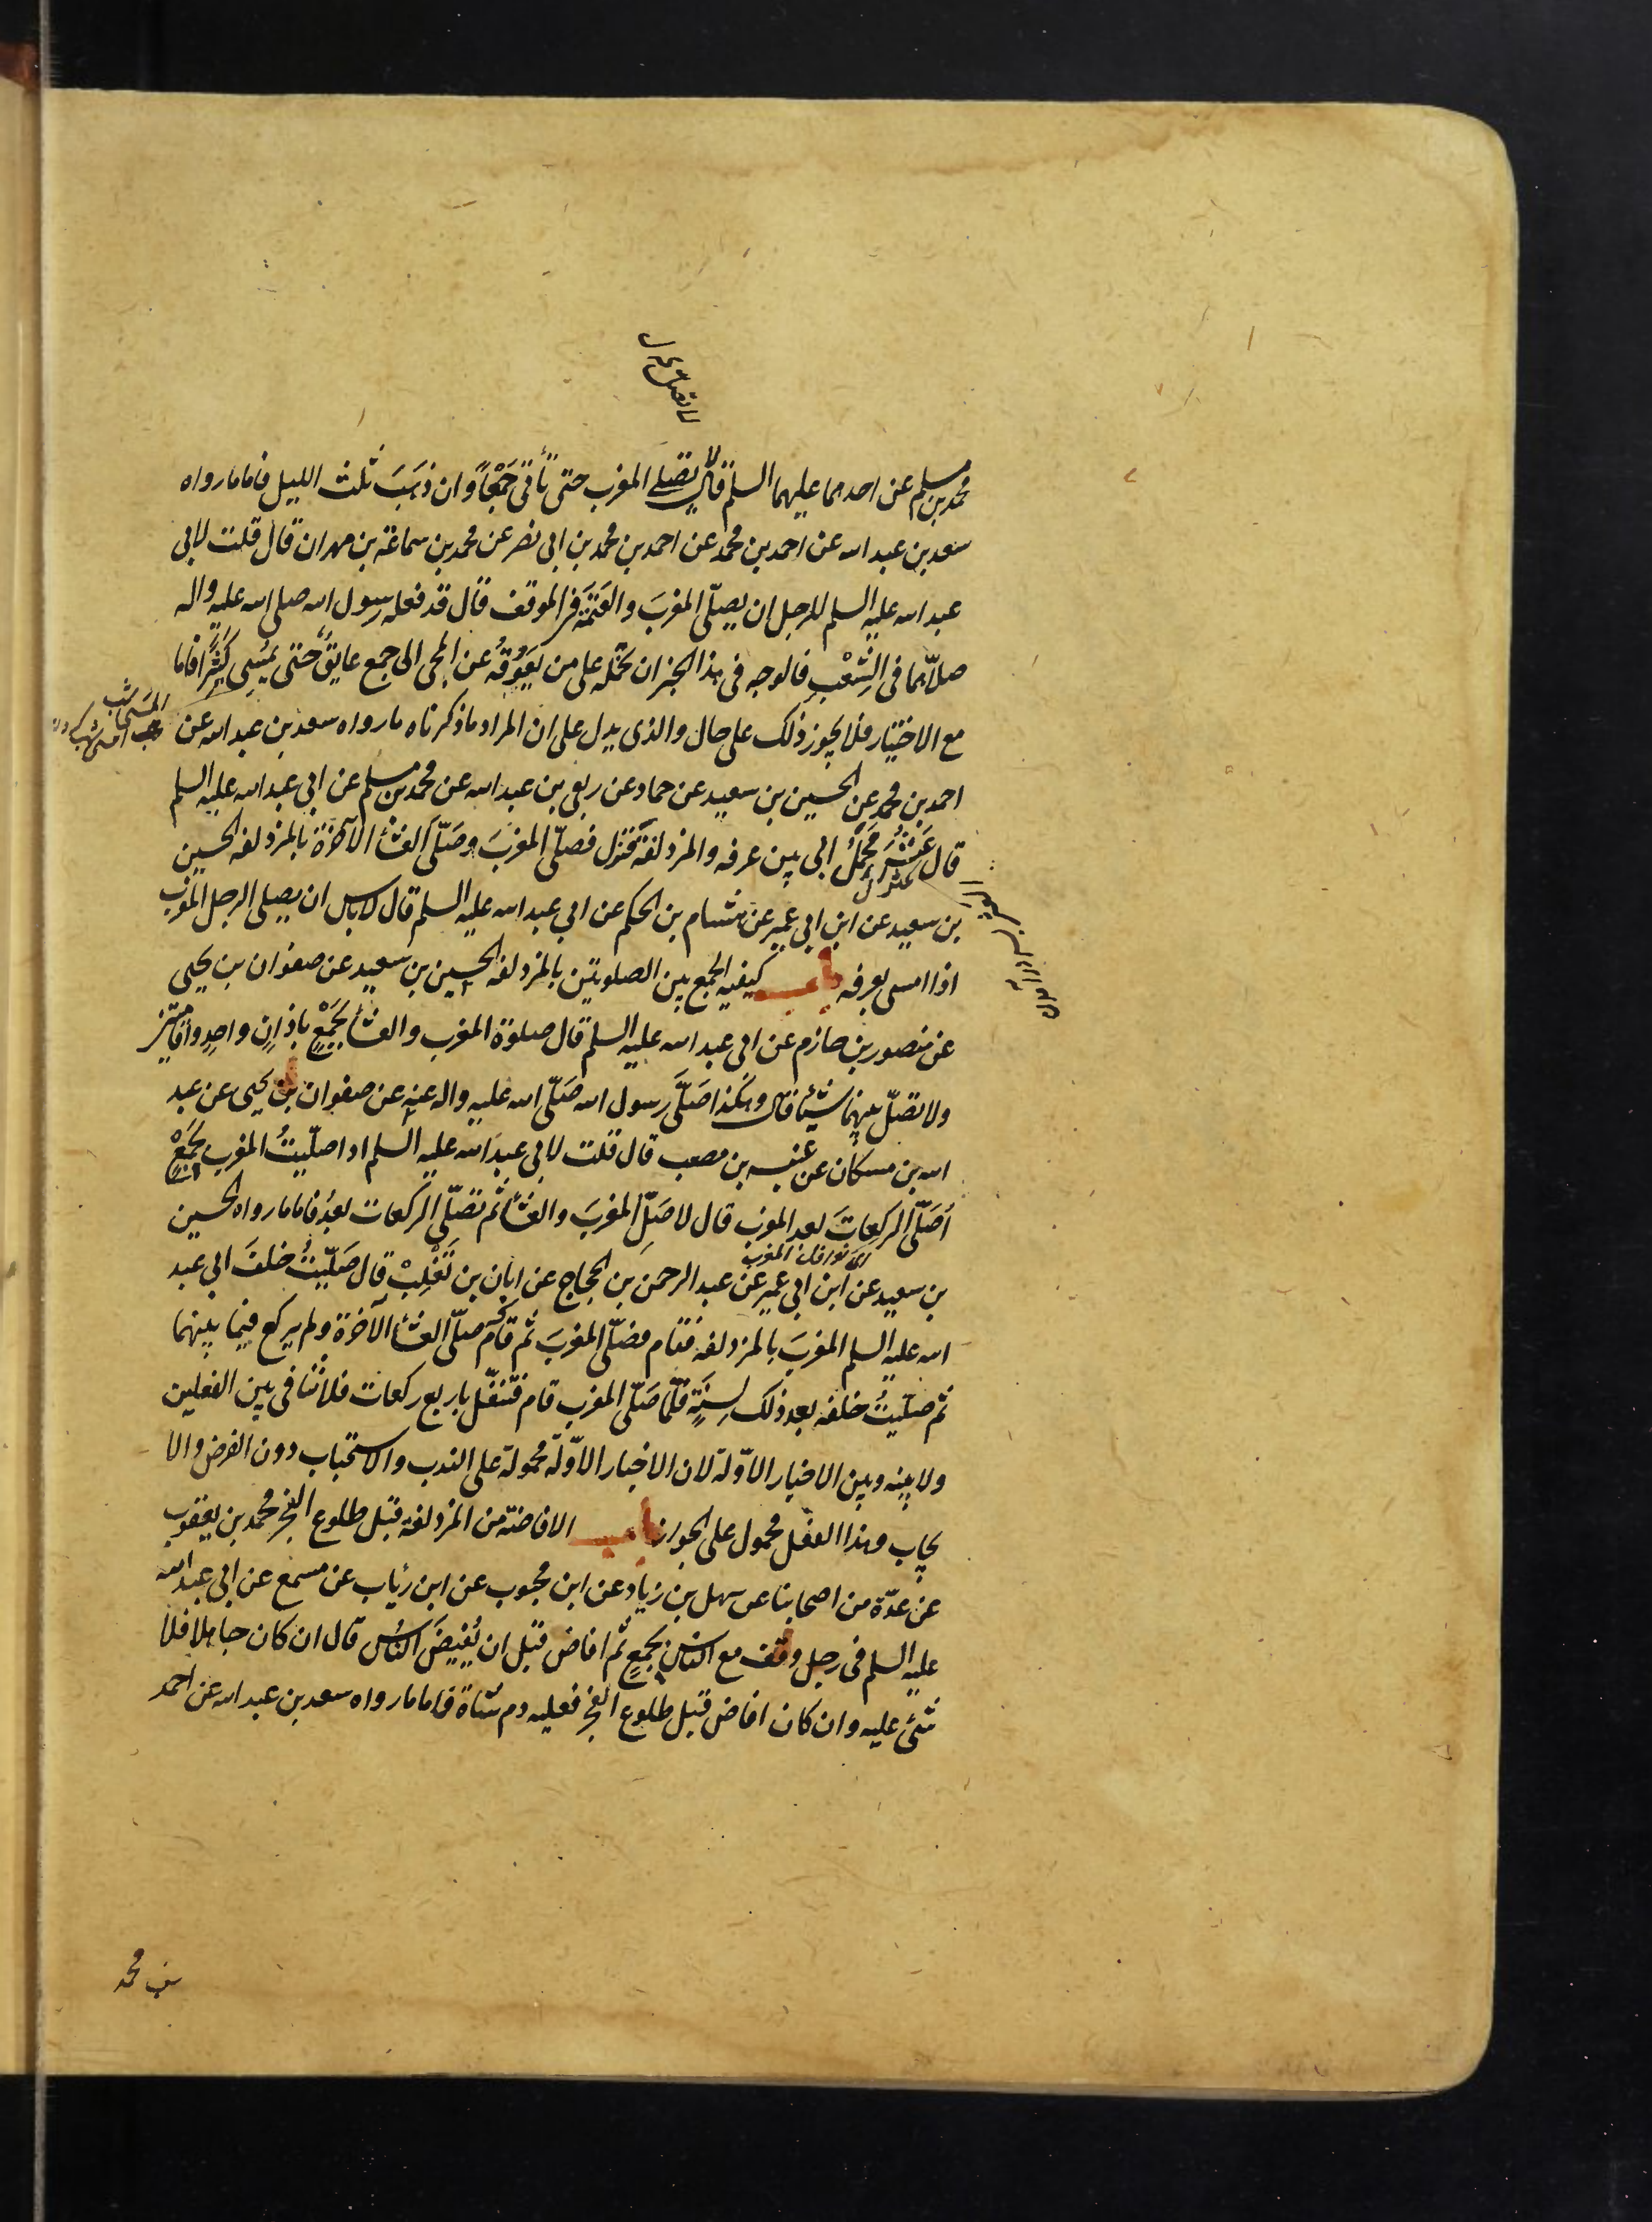 محمد بن مسلم عن احدهما عليهما السلم قال لا تصلے المغرب حتى تأتى جَمْعًا وان ذهَبَ ثلث الليل فاما ما رواه
سعد بن عبد الله عن احمد بن محمد عن احمد بن محمد بن ابى نصر عن محمد بن سماعة بن مهران قال قلت لابى
عبد الله عليه السلم للرجل ان يصلّى المغربَ والعَتَمَة فى الموقف قال قد فعله رسول الله صلى الله عليه واله
صلّاهما فى الشِعْب فالوجه فى هذا الخبر ان نحمله على من يَعوقُه عن المجى الى جمع عايقٌ حتى يُمسِى كثيرًا فاما
مع الاختيار فلا يجوز ذلك على حال والذى يدل على ان المراد ما ذكرناه ما رواه سعد بن عبد الله عن
احمد بن محمد عن الحسين بن سعيد عن حماد عن ربعى بن عبد الله عن محمد بن مسلم عن ابى عبد الله عليه السلم
قال عَثَرَ مَحمِلُ ابى بين عرفه والمزدلفة فنزل فصلّى المغربَ وصَلّى العشأ الآخرة بالمزدلفه الحسين
بن سعيد عن ابن ابى عمير عن هشام بن الحكم عن ابى عبد الله عليه السلم قال لا باس ان يصلى الرجل المغرب
اذا امسى بعرفه باب كيفيه الجمع بين الصلوتين بالمزدلفه الحسين بن سعيد عن صفوان بن يحيى
عن منصور بن حازم عن ابى عبد الله عليه السلم قال صلوة المغرب والعشأ بجَمْعٍ باذانٍ واحدٍ واقامتين
ولا تصلّ بينهما شيئًا قال وهكذا صَلّى رسول الله صَلّى الله عليه واله عنه عن صفوان بن يحيى عن عبد
الله بن مسكان عن عنبسه بن مصعب قال قلت لابى عبد الله عليه السلم اذا صلّيتُ المغرب بجَمْعٍ
أصَلّى الركعات بعد المغرب قال لا صَلّ المغربَ والعشأ ثم تصَلّى الركعات بعدُ فاما ما رواه الحسين
اى نوافل المغرب
بن سعيد عن ابن ابى عمير عن عبد الرحمن بن الحجاج عن ابان بن تَغْلِبْ قال صَلّيتُ خلفَ ابى عبد
الله عليه السلم المغربَ بالمزدلفه فقام فصَلّى المغربَ ثم قام صلّى العشأ الآخرة ولم يركع فيما بينهما
ثم صلّيتُ خلفه بعد ذلك لِسنَةٍ فلمّا صَلّى المغرب قام فتنفّل باربع ركعات فلا تنافى بين الفعلين
ولا بينه وبين الاخبار الاوّلة لان الاخبار الاوّلة محمولة على الندب والاستحباب دون الفرض والا
يجاب وهذا الفعل محمول على الجواز باب الافاضة من المزدلفة قبل طلوع الفجر محمد بن يعقوب
عن عدّة من اصحابنا عن سهل بن زياد عن ابن محبوب عن ابن رئاب عن مسمع عن ابى عبد الله
عليه السلم فى رجل وقف مع الناس بجَمعٍ ثم افاض قبل ان يُفيضَ الناسُ قال ان كان جاهلا فلا
شئ عليه وان كان افاض قبل طلوع الفجر فعليه دم شاة فاما ما رواه سعد بن عبد الله عن احمد
بن محمد